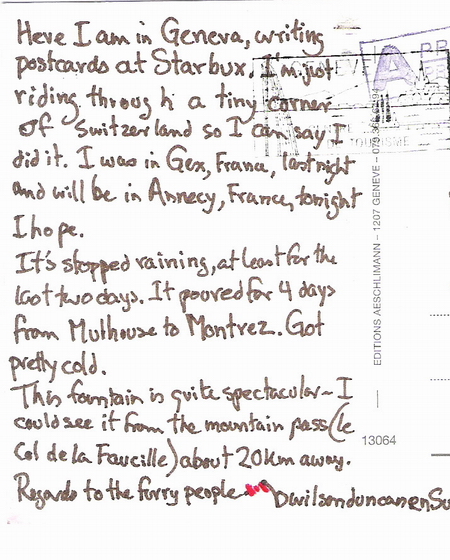 Here I am in Geneva, writing
postcards at Starbux. I'm just
riding through a tiny corner
of Switzerland so I can say I
did it. I was in Gex, France, last night
and will be in Annecy, France, tonight
I hope.
It's stopped raining, at least for the
last two days. It poured for 4 days
from Mulhouse to Montrez. Got
pretty cold.
This fountain is quite spectacular - I
could see it from the mountain pass (le
Col de la Faucille) about 20km away.
Regards to the furry people
TOURISME
EDITIONS AESCHLIMANN – 1207 GENEVE –
13064